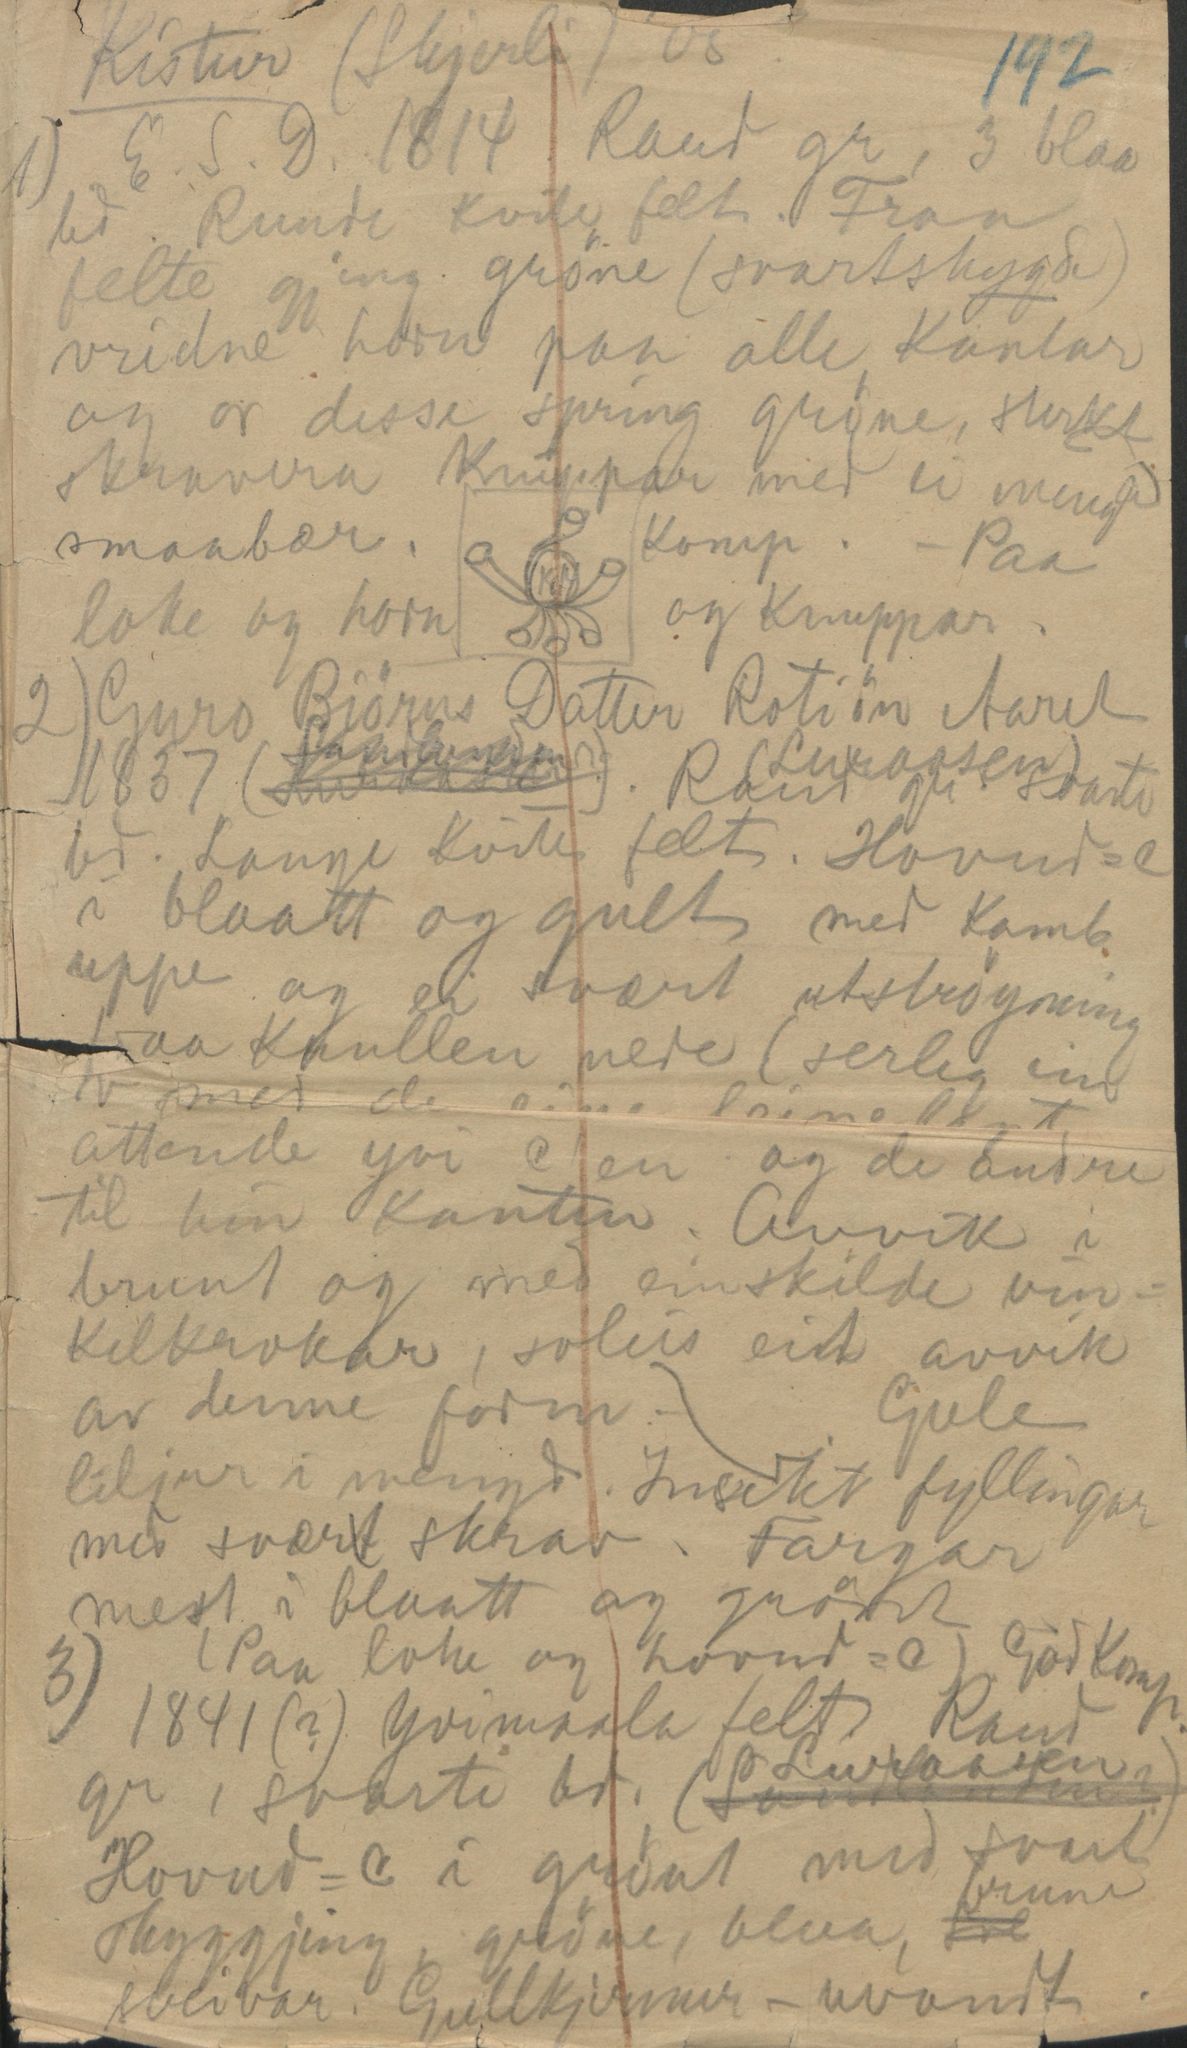 Kistur (Skjerli) Øs
192
1) E. S. D. 1814 Raud gr, 3 blaa
bd. Runde kvite felt. Fraa
felte gjeng gröne (svartskygde)
vridne horn paa alle Kantar
og or desse spring gröne, sterkt
skravera Knuppar med ei mengd
smaabær. Komp. - Paa
loke og horn og Knuppar.
2) Guro Björns Datter Rotiön Aaret
1837 (Luraasen). Raud gr svarte
bd. Lange kvite felt. Hovud=C
i blaatt og gult med Kamb
uppe og ei svært utströyning
fraa Knullen nede (serleg inn
med de eine
attende yvi C'en og de andre
til hin Kanten. Avvik i
brunt og med einskilde vin=
kelkrokar, soleis eit avvik
av denne form - Gule
liljur i mengd. Insekt fyllingar
med svært skrav. Fargar
mest i blaatt og grönt
(Paa loke og hovud=C) God Komp.
3) 1841(?) Yvimaala felt Raud
gr, svarte bd. (Luraasen?)
Hovud=C i grönt med svart
skyggjing, gröne, blaa, brune
sveivar. Gullkjernur - uvandt.